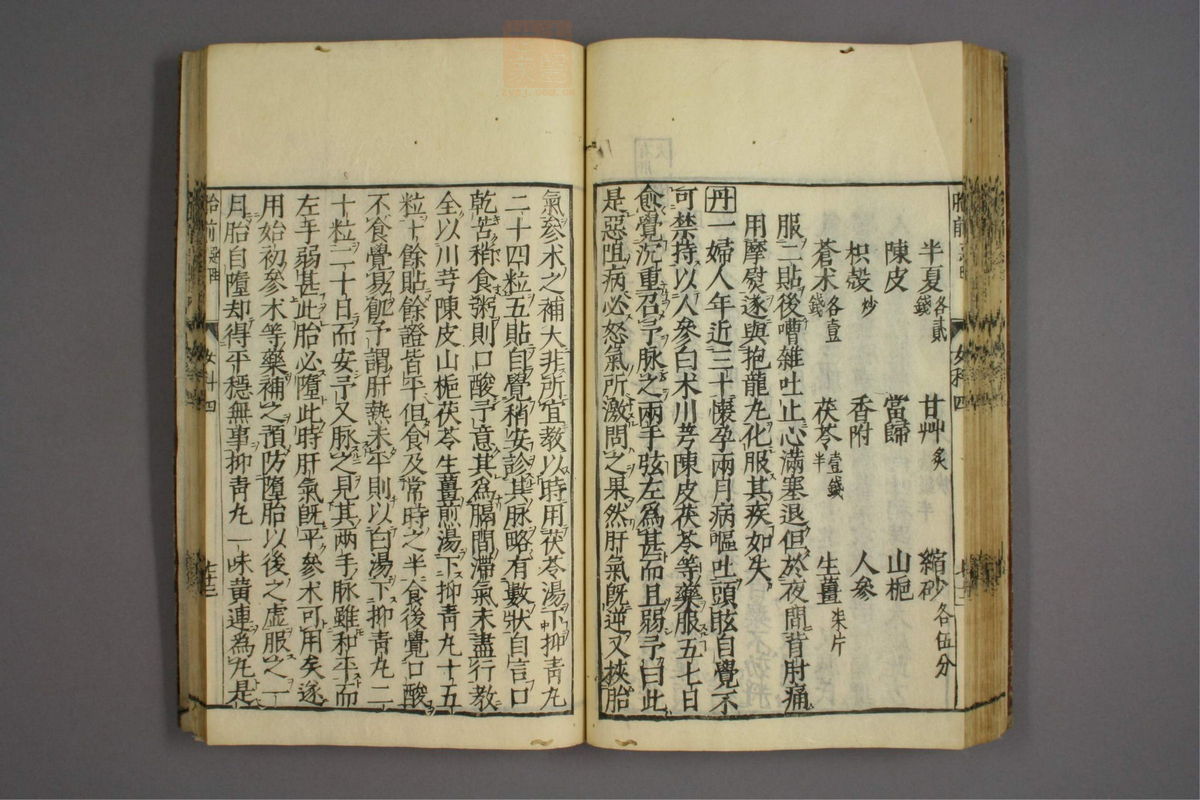 半夏各貳錢 甘艸炙 縮砂各伍分
陳皮 當歸 山梔
枳殼炒 香附 人參
蒼朮各壹錢 茯苓壹錢半 生薑柒片
服二貼後嘈雜吐止心滿塞退但於夜間背肘痛
用摩熨遂與抱龍丸化服其疾如失
丹一婦人年近三十懷孕兩月病嘔吐頭眩自覺不
可禁持以人參白朮川芎陳皮茯苓等藥服五七日
愈覺沉重召予脉之兩手弦左為甚而且弱予曰此
是惡阻病必怒氣所激問之果然肝氣既逆又挾胎
氣參朮之補大非所宜教以時用茯苓湯下抑青丸
二十四粒五貼自覺稍安診其脉略有數狀自言口
乾苦稍食粥則口酸予意其為膈間滯氣未盡行教
全以川芎陳皮山梔茯苓生薑煎湯下抑青丸十五
粒十餘貼餘證皆平但食及常時之半食後覺口酸
不食覺易飢予謂肝熱未平則以白湯下抑青丸二
十粒二十日而安予又脉之見其兩手脉雖和平而
左手弱甚此胎必墮此時肝氣既平參朮可用矣遂
用始初參朮等藥補之預防墮胎以後之虛服之一
月胎自墮却得平穩無事抑青丸一味黃連為丸是
胎前 惡阻
女科四
七十三